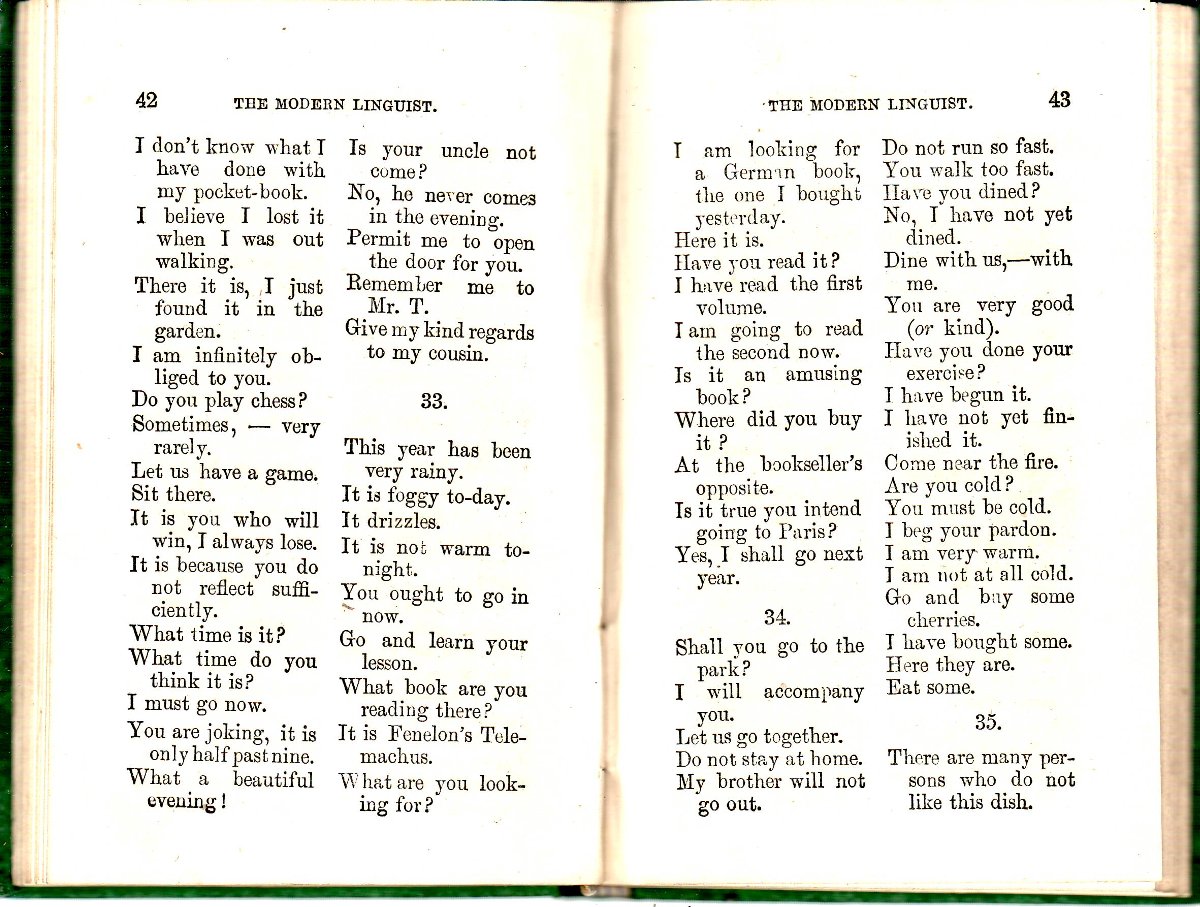 42
THE MODERN LINGUIST.
I don't know what I
have done with
my pocket-book.
I believe I lost it
when I was out
walking.
There it is, I just
found it in the
garden.
I am infinitely ob-
liged to you.
Do you play chess?
Sometimes, — very
rarely.
Let us have a game.
Sit there.
It is you who will
win, I always lose.
It is because you do
not reflect suffi-
ciently.
What time is it?
What time do you
think it is?
I must go now.
You are joking, it is
only half past nine.
What a beautiful
evening!
Is your uncle not
come?
No, he never comes
in the evening.
Permit me to open
the door for you.
Remember me to
Mr. T.
Give my kind regards
to my cousin.
33.
This year has been
very rainy.
It is foggy to-day.
It drizzles.
It is not warm to-
night.
You ought to go in
now.
Go and learn your
lesson.
What book are you
reading there?
It is Fenelon's Tele-
machus.
What are you look-
ing for?
THE MODERN LINGUIST.
43
I am looking for
a German book,
the one I bought
yesterday.
Here it is.
Have you read it?
I have read the first
volume.
I am going to read
the second now.
Is it an amusing
book?
Where did you buy
it?
At the bookseller's
opposite.
Is it true you intend
going to Paris?
Yes, I shall go next
year.
34.
Shall you go to the
park?
I will accompany
you.
Let us go together.
Do not stay at home.
My brother will not
go out.
Do not run so fast.
You walk too fast.
Have you dined?
No, I have not yet
dined.
Dine with us,—with
me.
You are very good
(or kind).
Have you done your
exercise?
I have begun it.
I have not yet fin-
ished it.
Come near the fire.
Are you cold?
You must be cold.
I beg your pardon.
I am very warm.
I am not at all cold.
Go and buy some
cherries.
I have bought some.
Here they are.
Eat some.
35.
There are many per-
sons who do not
like this dish.